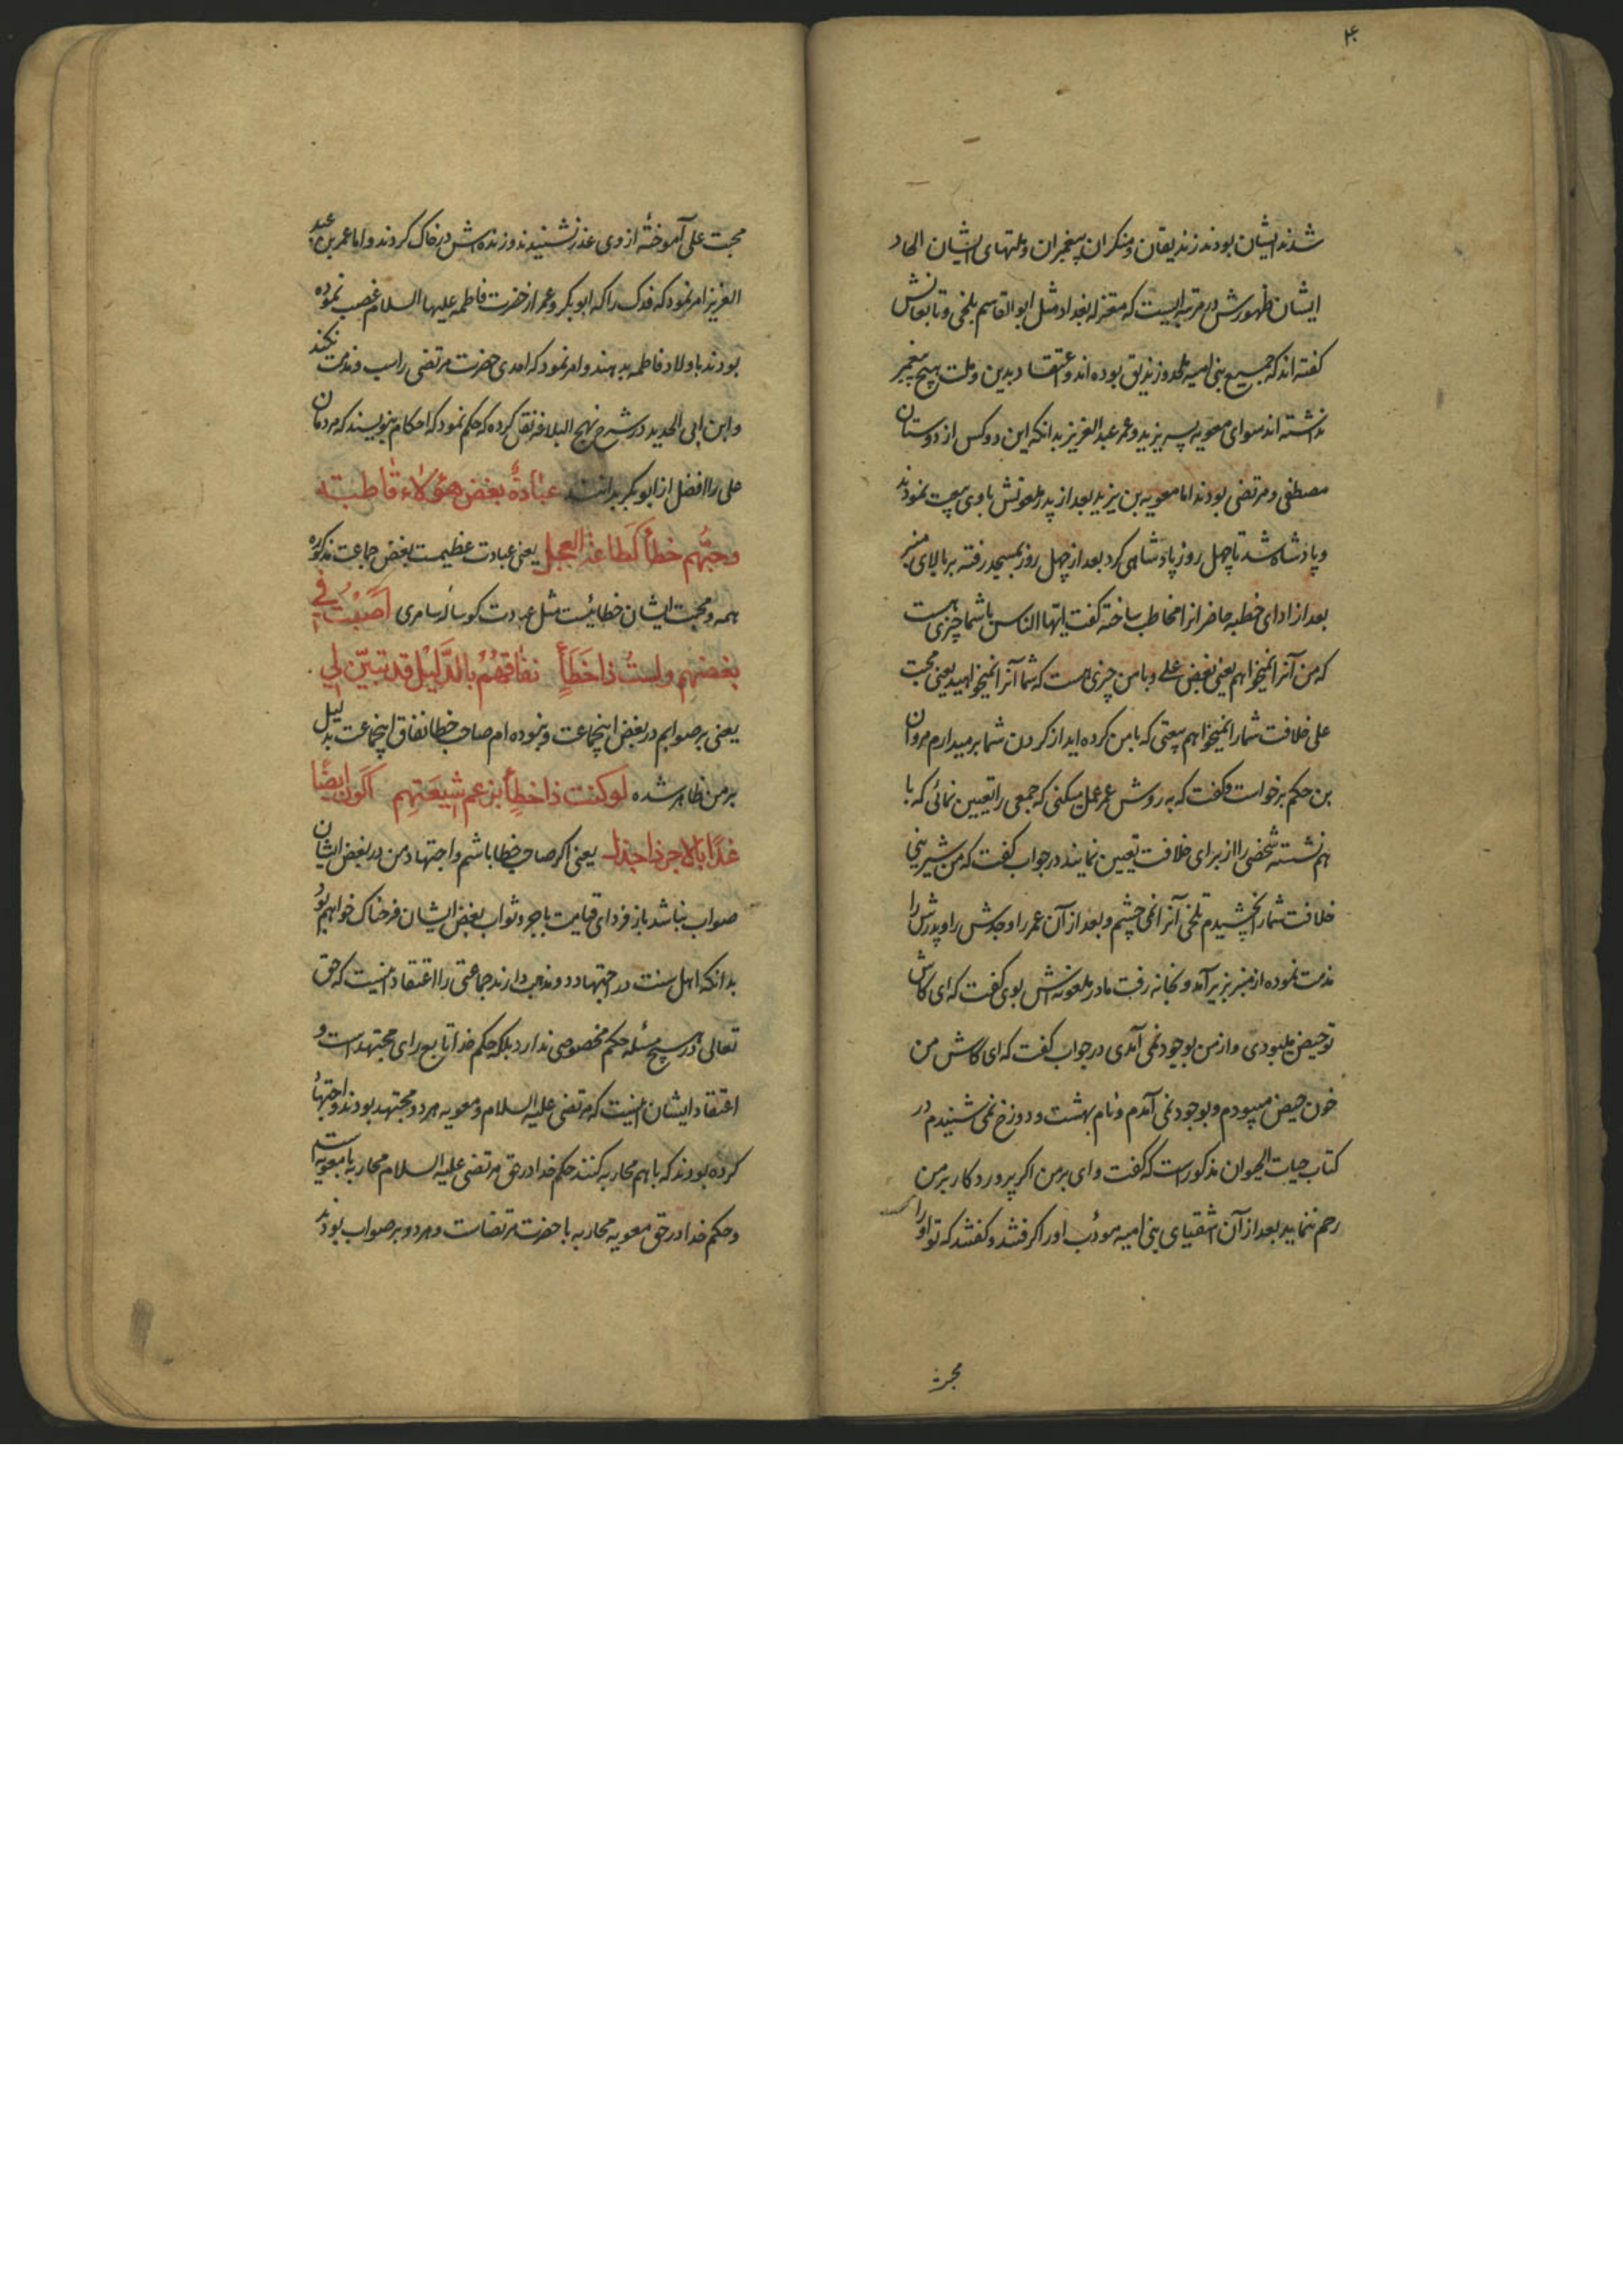 ۴
شدند ایشان بودند زندیقان و منکران پیغمبران و ملتهای ایشان الحاد
ایشان ظهورش در مرتبه ایست که معتزله بغداد مثل ابوالقاسم بلخی و تابعانش
گفته اند که جمیع بنی امیه ملحد و زندیق بوده اند و اعتقاد بدین و ملت هیچ پیغمبر
نداشته اند سوای معویه پسر یزید و عمر عبدالعزیز بدانکه این دو کس از دوستان
مصطفی و مرتضی بودند اما معویه بن یزید بعد از پدر ملعونش با وی بیعت نمودند
و پادشاه شد تا چهل روز پادشاهی کرد بعد از چهل روز بمسجد رفته بر بالای منبر
بعد از ادای خطبه حاضرانرا مخاطب ساخته گفت ایها الناس با شما چیزی هست
که من آنرا نمیخواهم یعنی بغض علی و با من چیزی هست که شما آنرا نمیخواهید یعنی محبت
علی خلافت شما را نمیخواهم بیعتی که با من کرده اید از گردن شما برمیدارم مروان
بن حکم برخواست و گفت که به روش عمر عمل میکنی که جمعی را تعیین نمائی که با
هم نشسته شخصی را از برای خلافت تعیین نمایند در جواب گفت که من شیرینی
خلافت شما را نچشیدم تلخی آنرا نمی چشم و بعد از آن عمر را و جدش را و پدرش را
مذمت نموده از منبر بزیر آمد و بخانه رفت مادر ملعونه اش بوی گفت که ای کاش
تو حیض میبودی و از من بوجود نمی آمدی در جواب گفت که ای کاش من
خون حیض میبودم و بوجود نمی آمدم و نام بهشت و دوزخ نمی شنیدم در
کتاب حیات الحیوان مذکور است که گفت وای بر من اگر پروردگار بر من
رحم ننماید بعد از آن اشقیای بنی امیه مودب او را گرفتند و گفتند که تو او را
محبت
محبت علی آموختهٔ از وی عذر نشنیدند و زنده اش در خاک کردند و اما عمر بن عبد
العزیز امر نمود که فدک را که ابوبکر و عمر از حضرت فاطمه علیها السلام غصب نموده
بودند باولاد فاطمه بدهند و امر نمود که احدی حضرت مرتضی را سب و مذمت نکند
و ابن ابی الحدید در شرح نهج البلاغه نقل کرده که حکم نمود که احکام بنویسند که مردمان
علی را افضل از ابوبکر بدانند عبادةٌ بغض هؤلاء قاطبته
و حبّهم خطأ کخطأ عند العجل یعنی عبادت عظیمست بغض جماعت مذکوره
همه و محبت ایشان خطائیست مثل عبادت کوساله سامری اصبت فی
بغضهم و لستُ ذا خَطَأٍ نفاقهُم بالدَّلیل قد تبیّن لی
یعنی بر صوابم در بغض اینجماعت و نبوده ام صاحب خطا نفاق اینجماعت بدلیل
بر من ظاهر شده لو کنت ذا خطأٍ بزعم شیعَتِهم اکون ایضًا
غدًا بالاجر ذا جذل یعنی اگر صاحب خطا باشم و اجتهاد من در بغض ایشان
صواب نباشد باز فردای قیامت باجر و ثواب بغض ایشان فرحناک خواهم بود
بدانکه اهل سنت در اجتهاد دو مذهب دارند جماعتی را اعتقاد اینست که حق
تعالی در هیچ مسئله حکم مخصوصی ندارد بلکه حکم خدا تابع رای مجتهد است و
اعتقاد ایشان اینست که مرتضی علیه السلام و معویه هر دو مجتهد بودند و اجتهاد
کرده بودند که با هم محاربه کنند حکم خدا در حق مرتضی علیه السلام محاربه با معویه است
و حکم خدا در حق معویه محاربه با حضرت مرتضاست و هر دو بر صواب بودند